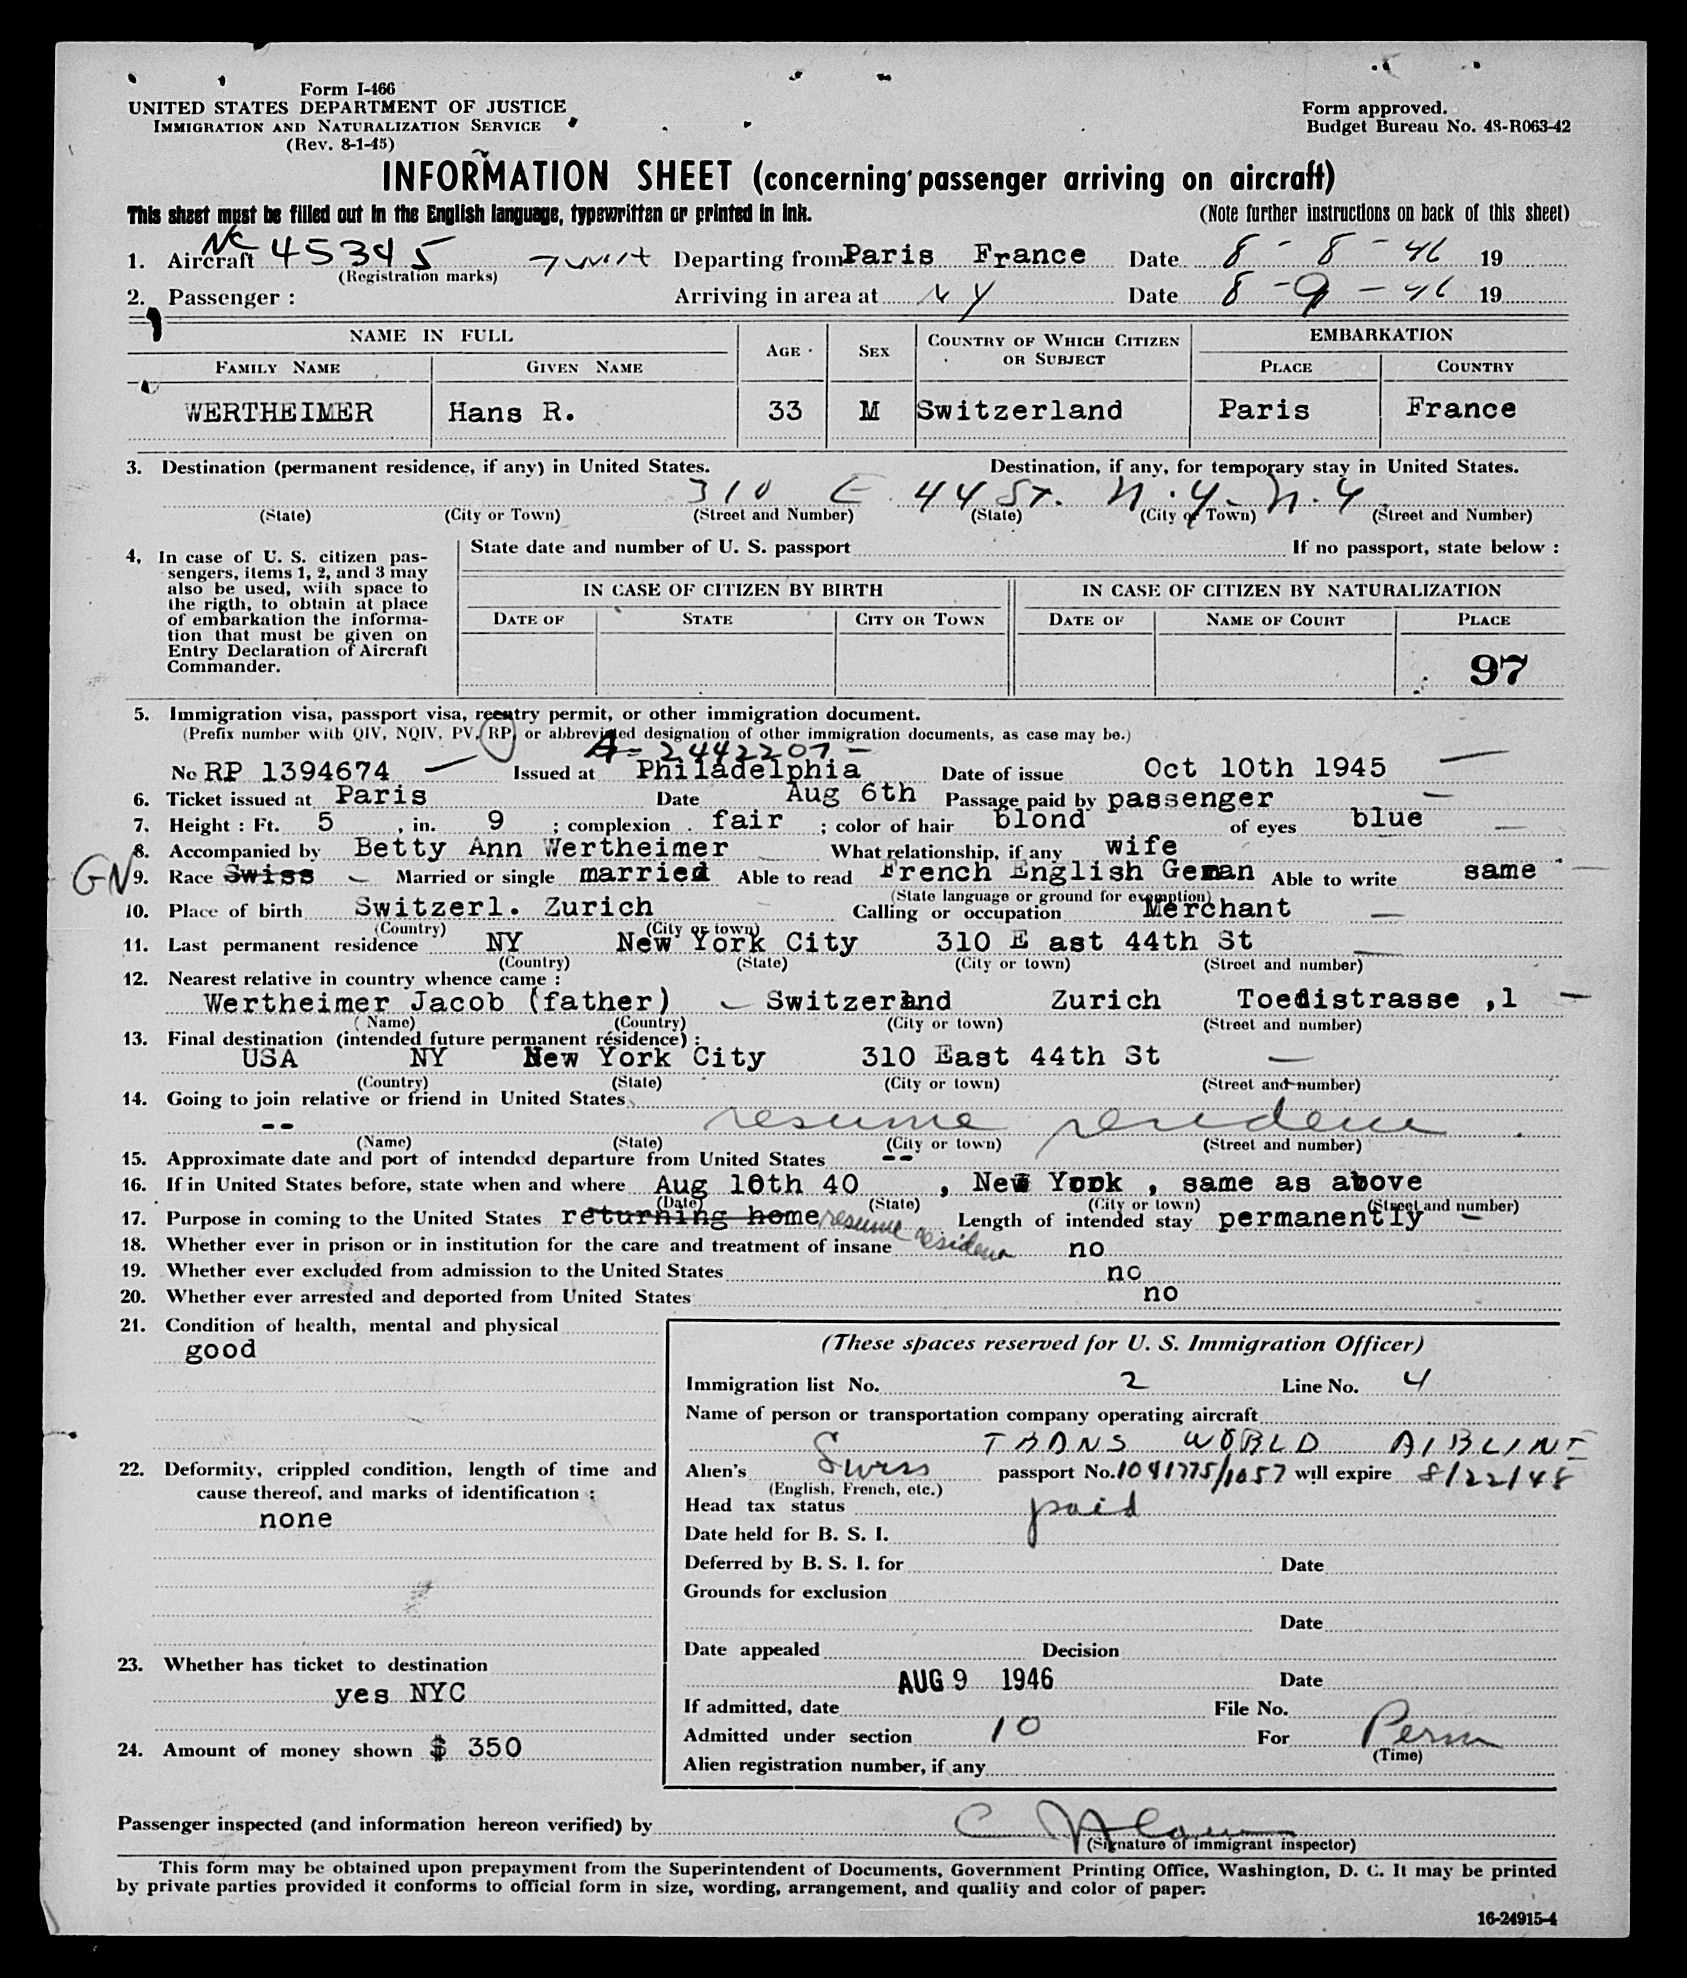 Form I-466
UNITED STATES DEPARTMENT OF JUSTICE
IMMIGRATION AND NATURALIZATION SERVICE
(Rev. 8-1-45)
Form approved.
Budget Bureau No. 43-R063-42
INFORMATION SHEET (concerning passenger arriving on aircraft)
This sheet must be filled out in the English language, typewritten or printed in ink.
(Note further instructions on back of this sheet)
1. Aircraft NC 45345 Departing from Paris France Date 8 - 8 - 46 19
(Registration marks)
2. Passenger : Arriving in area at N Y Date 8 - 9 - 46 19
NAME IN FULL AGE SEX COUNTRY OF WHICH CITIZEN OR SUBJECT EMBARKATION
FAMILY NAME GIVEN NAME PLACE COUNTRY
WERTHEIMER Hans R. 33 M Switzerland Paris France
3. Destination (permanent residence, if any) in United States. Destination, if any, for temporary stay in United States.
310 E. 44 St. N.Y. N.Y.
(State) (City or Town) (Street and Number) (State) (City or Town) (Street and Number)
4, In case of U. S. citizen pas-
sengers, items 1, 2, and 3 may
also be used, with space to
the rigth, to obtain at place
of embarkation the informa-
tion that must be given on
Entry Declaration of Aircraft
Commander.
State date and number of U. S. passport If no passport, state below :
IN CASE OF CITIZEN BY BIRTH IN CASE OF CITIZEN BY NATURALIZATION
DATE OF STATE CITY OR TOWN DATE OF NAME OF COURT PLACE
97
5. Immigration visa, passport visa, reentry permit, or other immigration document.
(Prefix number with QIV, NQIV, PV, RP, or abbreviated designation of other immigration documents, as case may be.)
A- 2442207 -
No RP 1394674 Issued at Philadelphia Date of issue Oct 10th 1945
6. Ticket issued at Paris Date Aug 6th Passage paid by passenger
7. Height : Ft. 5 , in. 9 ; complexion fair ; color of hair blond of eyes blue
8. Accompanied by Betty Ann Wertheimer What relationship, if any wife
GN 9. Race Swiss Married or single married Able to read French English Geman Able to write same
(State language or ground for exemption)
10. Place of birth Switzerl. Zurich Calling or occupation Merchant
(Country) (City or town)
11. Last permanent residence NY New York City 310 E ast 44th St
(Country) (State) (City or town) (Street and number)
12. Nearest relative in country whence came :
Wertheimer Jacob (father) Switzerland Zurich Toedistrasse ,1
(Name) (Country) (City or town) (Street and number)
13. Final destination (intended future permanent résidence) :
USA NY New York City 310 East 44th St
(Country) (State) (City or town) (Street and number)
14. Going to join relative or friend in United States
-- resume residence
(Name) (State) (City or town) (Street and number)
15. Approximate date and port of intended departure from United States --
16. If in United States before, state when and where Aug 10th 40 , New York , same as above
(Date) (State) (City or town) (Street and number)
17. Purpose in coming to the United States returning home resume residence Length of intended stay permanently
18. Whether ever in prison or in institution for the care and treatment of insane no
19. Whether ever excluded from admission to the United States no
20. Whether ever arrested and deported from United States no
21. Condition of health, mental and physical
good
22. Deformity, crippled condition, length of time and
cause thereof, and marks of identification :
none
23. Whether has ticket to destination
yes NYC
24. Amount of money shown $ 350
(These spaces reserved for U. S. Immigration Officer)
Immigration list No. 2 Line No. 4
Name of person or transportation company operating aircraft
TRANS WORLD AIRLINE
Alien's Swiss passport No. 1041775/1057 will expire 8/22/48
(English, French, etc.)
Head tax status paid
Date held for B. S. I.
Deferred by B. S. I. for Date
Grounds for exclusion
Date
Date appealed Decision
AUG 9 1946 Date
If admitted, date File No.
Admitted under section 10 For Perm
(Time)
Alien registration number, if any
Passenger inspected (and information hereon verified) by
(Signature of immigrant inspector)
This form may be obtained upon prepayment from the Superintendent of Documents, Government Printing Office, Washington, D. C. It may be printed
by private parties provided it conforms to official form in size, wording, arrangement, and quality and color of paper.
16-24915-4